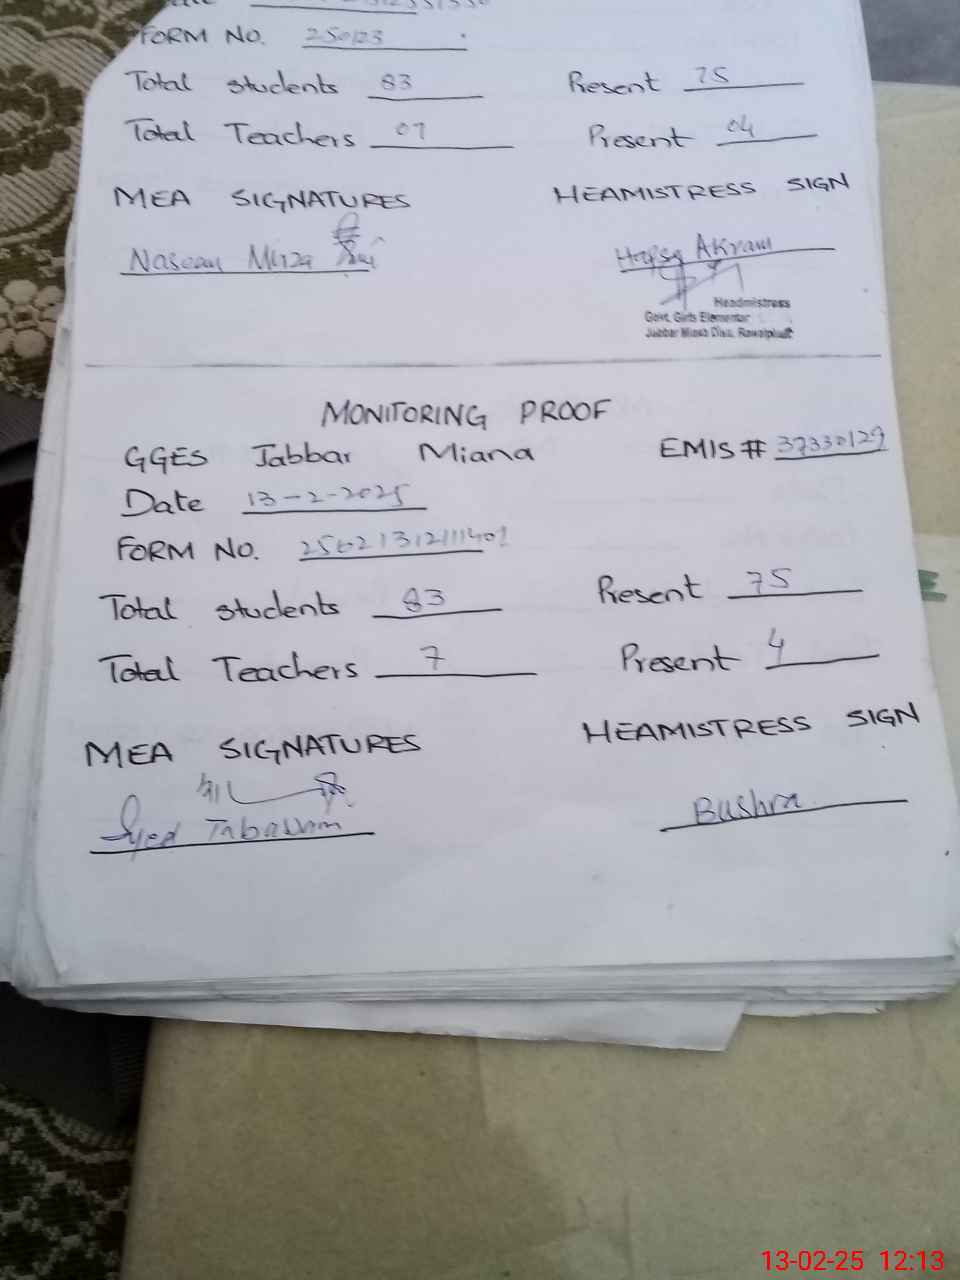 FORM NO. 250123
Total students 83 Present 75
Total Teachers 07 Present 04
MEA SIGNATURES HEAMISTRESS SIGN
Naseem Mirza Hafsa Akram
Headmistress
Govt. Girls Elementar
Jabbar Miana Distt. Rawalpindi
MONITORING PROOF
GGES Jabbar Miana EMIS # 37330129
Date 13-2-2025
FORM NO.
Total students 83 Present 75
Total Teachers 7 Present 4
MEA SIGNATURES HEAMISTRESS SIGN
Syed Tabassum Bushra
13-02-25 12:13